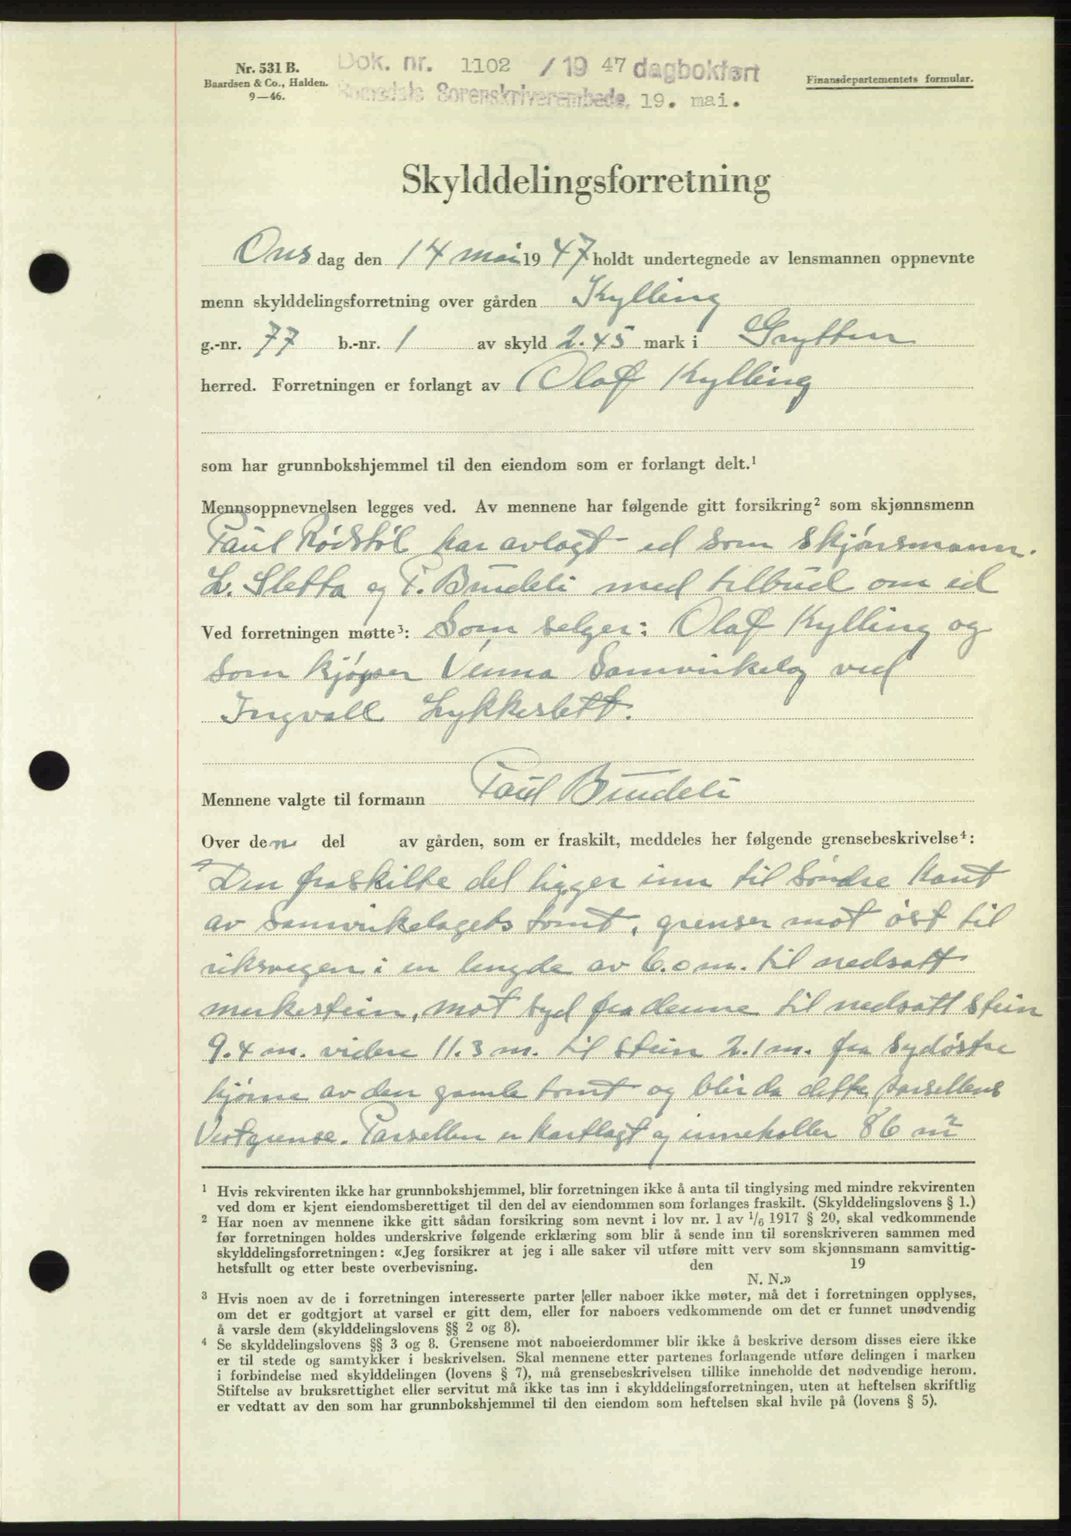 Nr. 531 B.
Baardsen & Co., Halden.
9—46.
Dok. nr. 1102 / 19 47 dagbokført
Romsdals Sorenskriverembede, 19. mai.
Finansdepartementets formular.
Skylddelingsforretning
Ons dag den 14 mai 19 47 holdt undertegnede av lensmannen oppnevnte
menn skylddelingsforretning over gården Kylling
g.-nr. 77 b.-nr. 1 av skyld 2.45 mark i Grytten
herred. Forretningen er forlangt av Olaf Kylling
som har grunnbokshjemmel til den eiendom som er forlangt delt.¹
Mennsoppnevnelsen legges ved. Av mennene har følgende gitt forsikring² som skjønnsmenn
Paul Rødstøl har avlagt ed som skjønsmann.
L. Sletta og P. Bundeli med tilbud om ed
Ved forretningen møtte³: Som selger: Olaf Kylling og
som kjøper Verma Samvirkelag ved
Ingvall Lykkeslett.
Mennene valgte til formann Paul Bundeli
Over den del av gården, som er fraskilt, meddeles her følgende grensebeskrivelse⁴:
Den fraskilte del ligger inn til søndre kant
av samvirkelagets tomt, grenser mot øst til
riksvegen i en lengde av 6.0 m. til nedsatt
merkestein, mot syd fra denne til nedsatt stein
9.4 m. videre 11.3 m. til stein 2.1 m. fra sydøstre
hjørne av den gamle tomt og blir da dette parsellens
Vestgrense. Parsellen er kartlagt og inneholler 86 m²
¹ Hvis rekvirenten ikke har grunnbokshjemmel, blir forretningen ikke å anta til tinglysing med mindre rekvirenten
ved dom er kjent eiendomsberettiget til den del av eiendommen som forlanges fraskilt. (Skylddelingslovens § 1.)
² Har noen av mennene ikke gitt sådan forsikring som nevnt i lov nr. 1 av 1/6 1917 § 20, skal vedkommende
før forretningen holdes underskrive følgende erklæring som blir å sende inn til sorenskriveren sammen med
skylddelingsforretningen: «Jeg forsikrer at jeg i alle saker vil utføre mitt verv som skjønnsmann samvittig-
hetsfullt og etter beste overbevisning. den 19
N. N.»
³ Hvis noen av de i forretningen interesserte parter eller naboer ikke møter, må det i forretningen opplyses,
om det er godtgjort at varsel er gitt dem, eller for naboers vedkommende om det er funnet unødvendig
å varsle dem (skylddelingslovens §§ 2 og 8).
⁴ Se skylddelingslovens §§ 3 og 8. Grensene mot naboeierdommer blir ikke å beskrive dersom disses eiere ikke
er til stede og samtykker i beskrivelsen. Skal mennene etter partenes forlangende utføre delingen i marken
i forbindelse med skylddelingen (lovens § 7), må grensebeskrivelsen tillike inneholde det nødvendige herom.
Stiftelse av bruksrettighet eller servitut må ikke tas inn i skylddelingsforretningen, uten at heftelsen skriftlig
er vedtatt av den som har grunnbokshjemmel til den eiendom som heftelsen skal hvile på (lovens § 5).